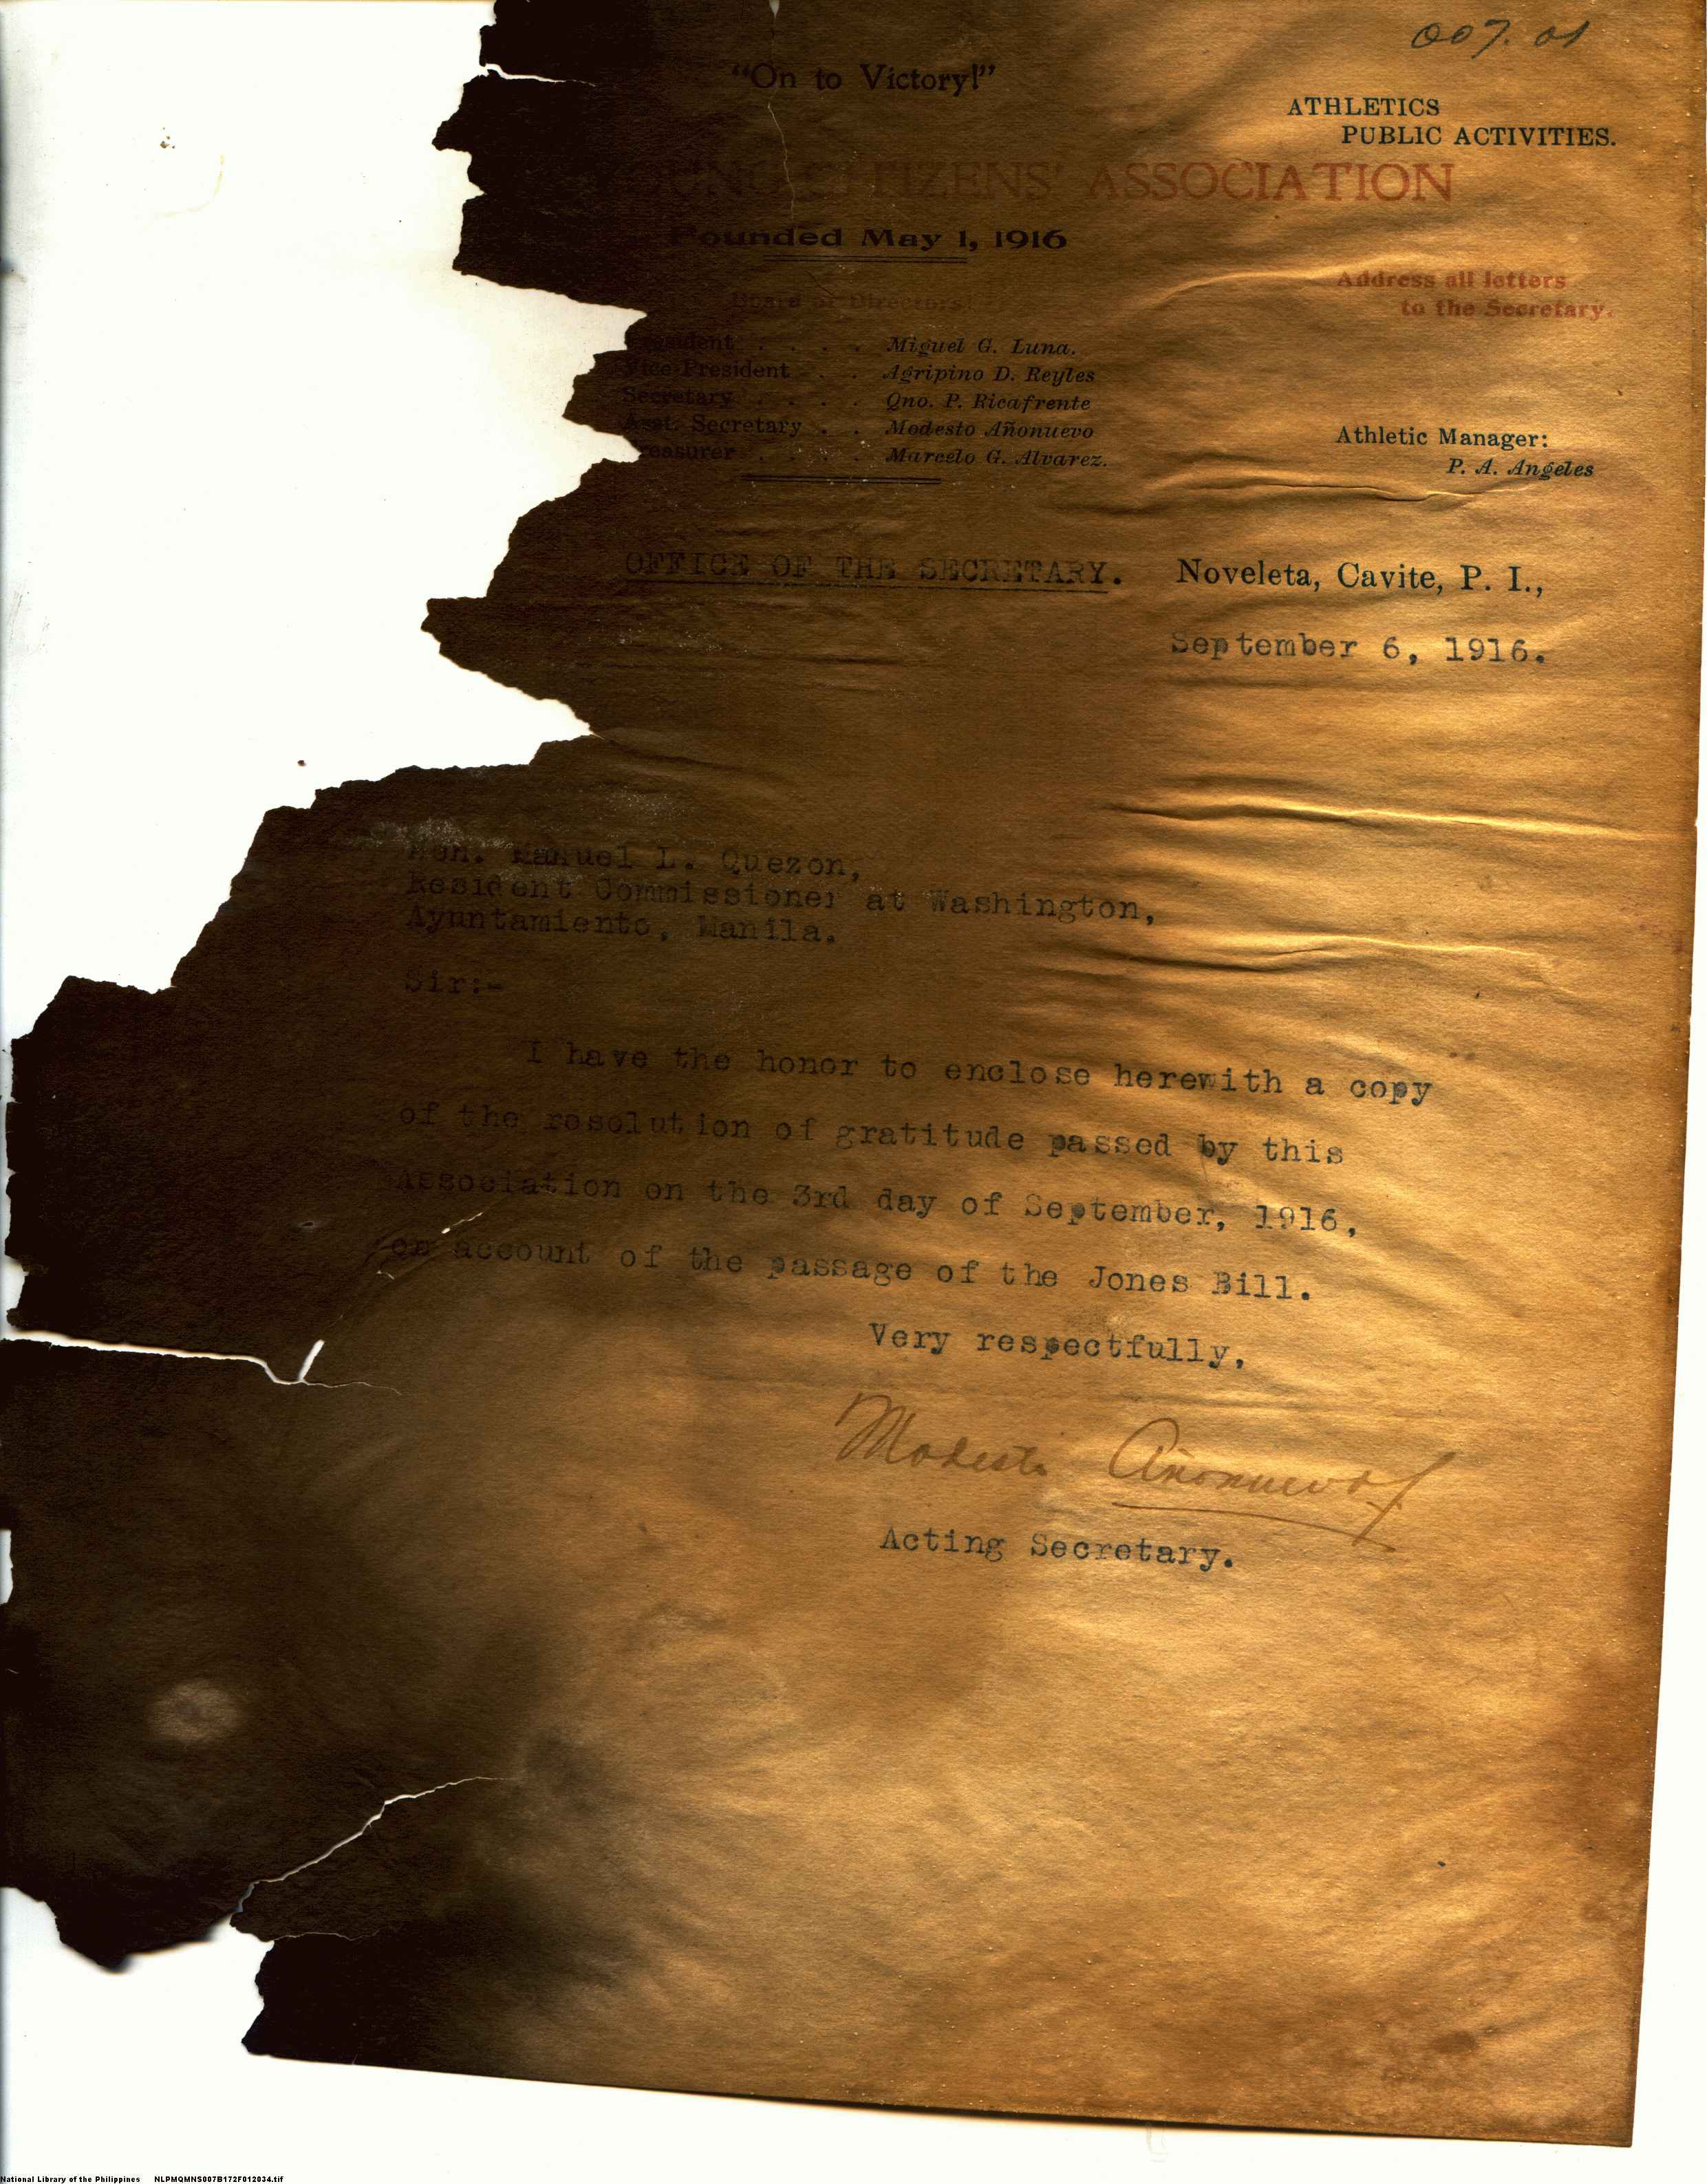 007.01
"On to Victory!"
ATHLETICS
PUBLIC ACTIVITIES.
OUNG CITIZENS' ASSOCIATION
Founded May 1, 1916
Address all letters
to the Secretary.
Board of Directors:
President . . . . Miguel G. Luna.
Vice-President . . Agripino D. Reyles
Secretary . . . . Qno. P. Ricafrente
Asst. Secretary . . Modesto Añonuevo
reasurer . . . . Marcelo G. Alvarez.
Athletic Manager:
P. A. Angeles
OFFICE OF THE SECRETARY. Noveleta, Cavite, P. I.,
September 6, 1916.
Hon. Manuel L. Quezon,
Resident Commissioner at Washington,
Ayuntamiento, Manila.
Sir:-
I have the honor to enclose herewith a copy
of the resolution of gratitude passed by this
Association on the 3rd day of September, 1916,
on account of the passage of the Jones Bill.
Very respectfully,
Modesto Añonuevo
Acting Secretary.
National Library of the Philippines NLPMQMNS007B172F012034.tif